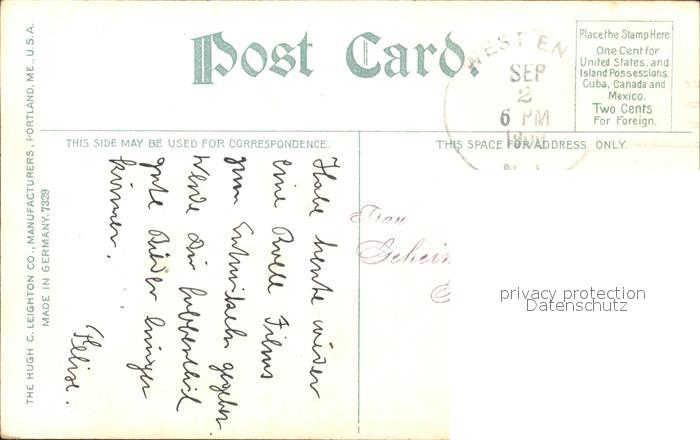 Post Card.
WEST EN
SEP
2
6 PM
Place the Stamp Here
One Cent for
United States, and
Island Possessions.
Cuba, Canada and
Mexico.
Two Cents
For Foreign.
THIS SIDE MAY BE USED FOR CORRESPONDENCE.
THIS SPACE FOR ADDRESS ONLY.
THE HUGH C. LEIGHTON CO., MANUFACTURERS, PORTLAND, ME., U.S.A.
MADE IN GERMANY. 7329
Habe heute wieder
eine Rolle Films
zum Entwickeln gegeben.
Werde Dir hoffentlich
gute Bilder bringen
können.
Felix.
Frau
Geheim
privacy protection
Datenschutz